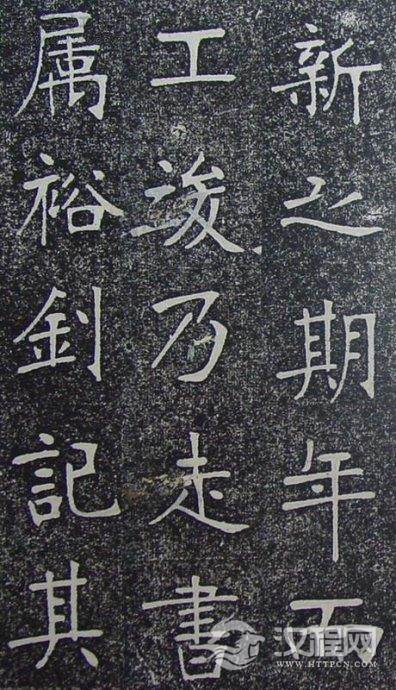 新之期年而
工竣乃走書
属裕釗記其
汉程网
WWW.HTTPCN.COM